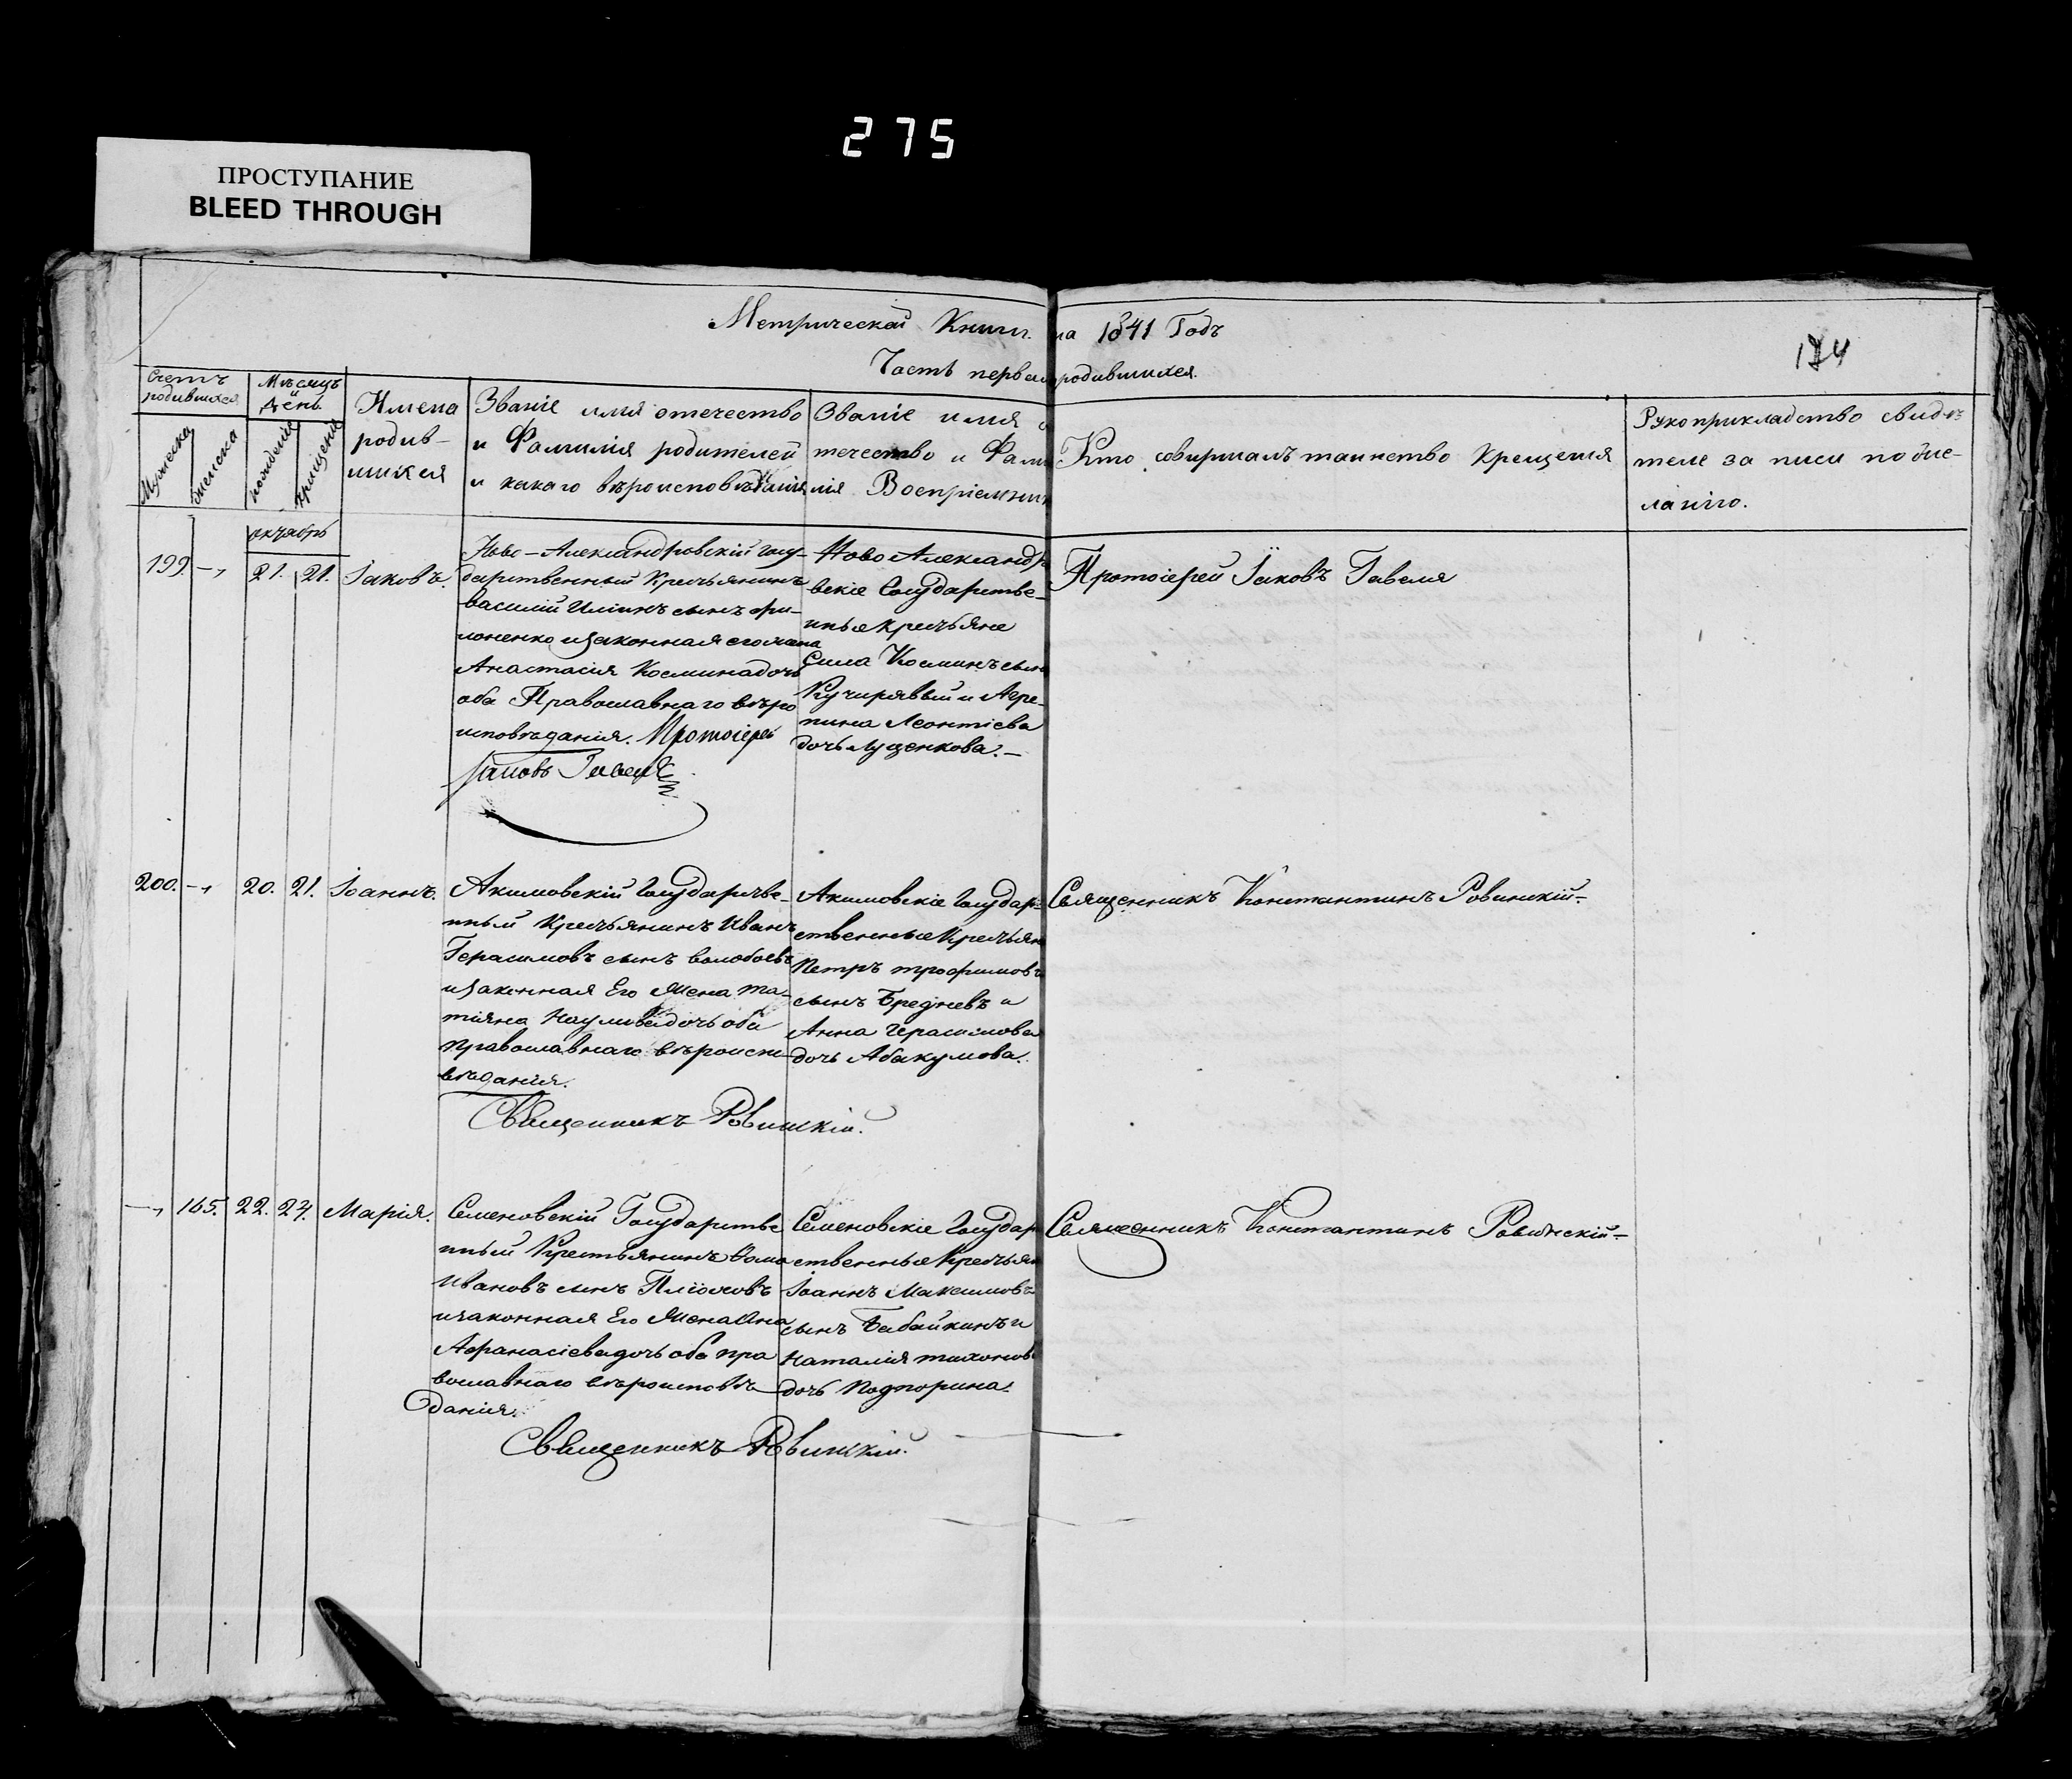 275
ПРОСТУПАНИЕ
BLEED THROUGH
Метрической Книги на 1841 Годъ
Часть первая родившихся.
174
Счетъ родившихся
Мѣсяцъ и день
Мужеска
женска
рожденія
крещенія
Имена
родив-
шихся
Званіе имя отечество
и Фамилія родителей
и какаго вѣроисповѣданія
Званіе имя о
течество и Фами
лія Воспріемник
Кто совершалъ таинство крещенія
Рукоприкладство свидѣ
теле записи по
октябрь
199. 21. 21. Іаковъ.
Ново-Александровскій госу-
дарственный крестьянинъ
василій Илiинъ сынъ фи-
лоненко изаконная его жена
Анастасія Косминадочь
оба Православнаго вѣро
исповѣданія. Протоіерей
Іаковъ Гавеля
Ново Александро
вскіе Государстве-
нные крестьяне
Сила Косминъ сынъ
Кучирявый и Агре-
пина Леонтіева
дочь Луценкова.-
Протоіерей Іаковъ Гавеля
200. 20. 21. Іоаннъ.
Акимовскій Государстве-
нный крестьянинъ Иванъ
Герасимовъ сынъ волобоевъ
изаконная Его Жена та-
тіяна Наумовадочь оба
православнаго вѣроиспо-
вѣданія.
Священникъ Ровинскій.
Акимовскіе Государ-
ственные Крестьяне
Петръ трофимовъ
сынъ Бредневъ и
Анна Герасимова
дочь Абакумова.
Священникъ Константинъ Ровинскій.-
165. 22. 24. Марія.
Семеновскій Государстве
нный Крестьянинъ Фома
Ивановъ сынъ
изаконная Его Жена Анна
Афанасіевадочь оба пра
вославнаго вѣроисповѣ
данія.
Священникъ Ровинскій.
Семеновскіе Государ
ственные Крестьяне
Іоаннъ Максимовъ
сынъ Бабайкинъ и
Наталія тихонова
дочь Подпорина.
Священникъ Константинъ Ровинскій.-